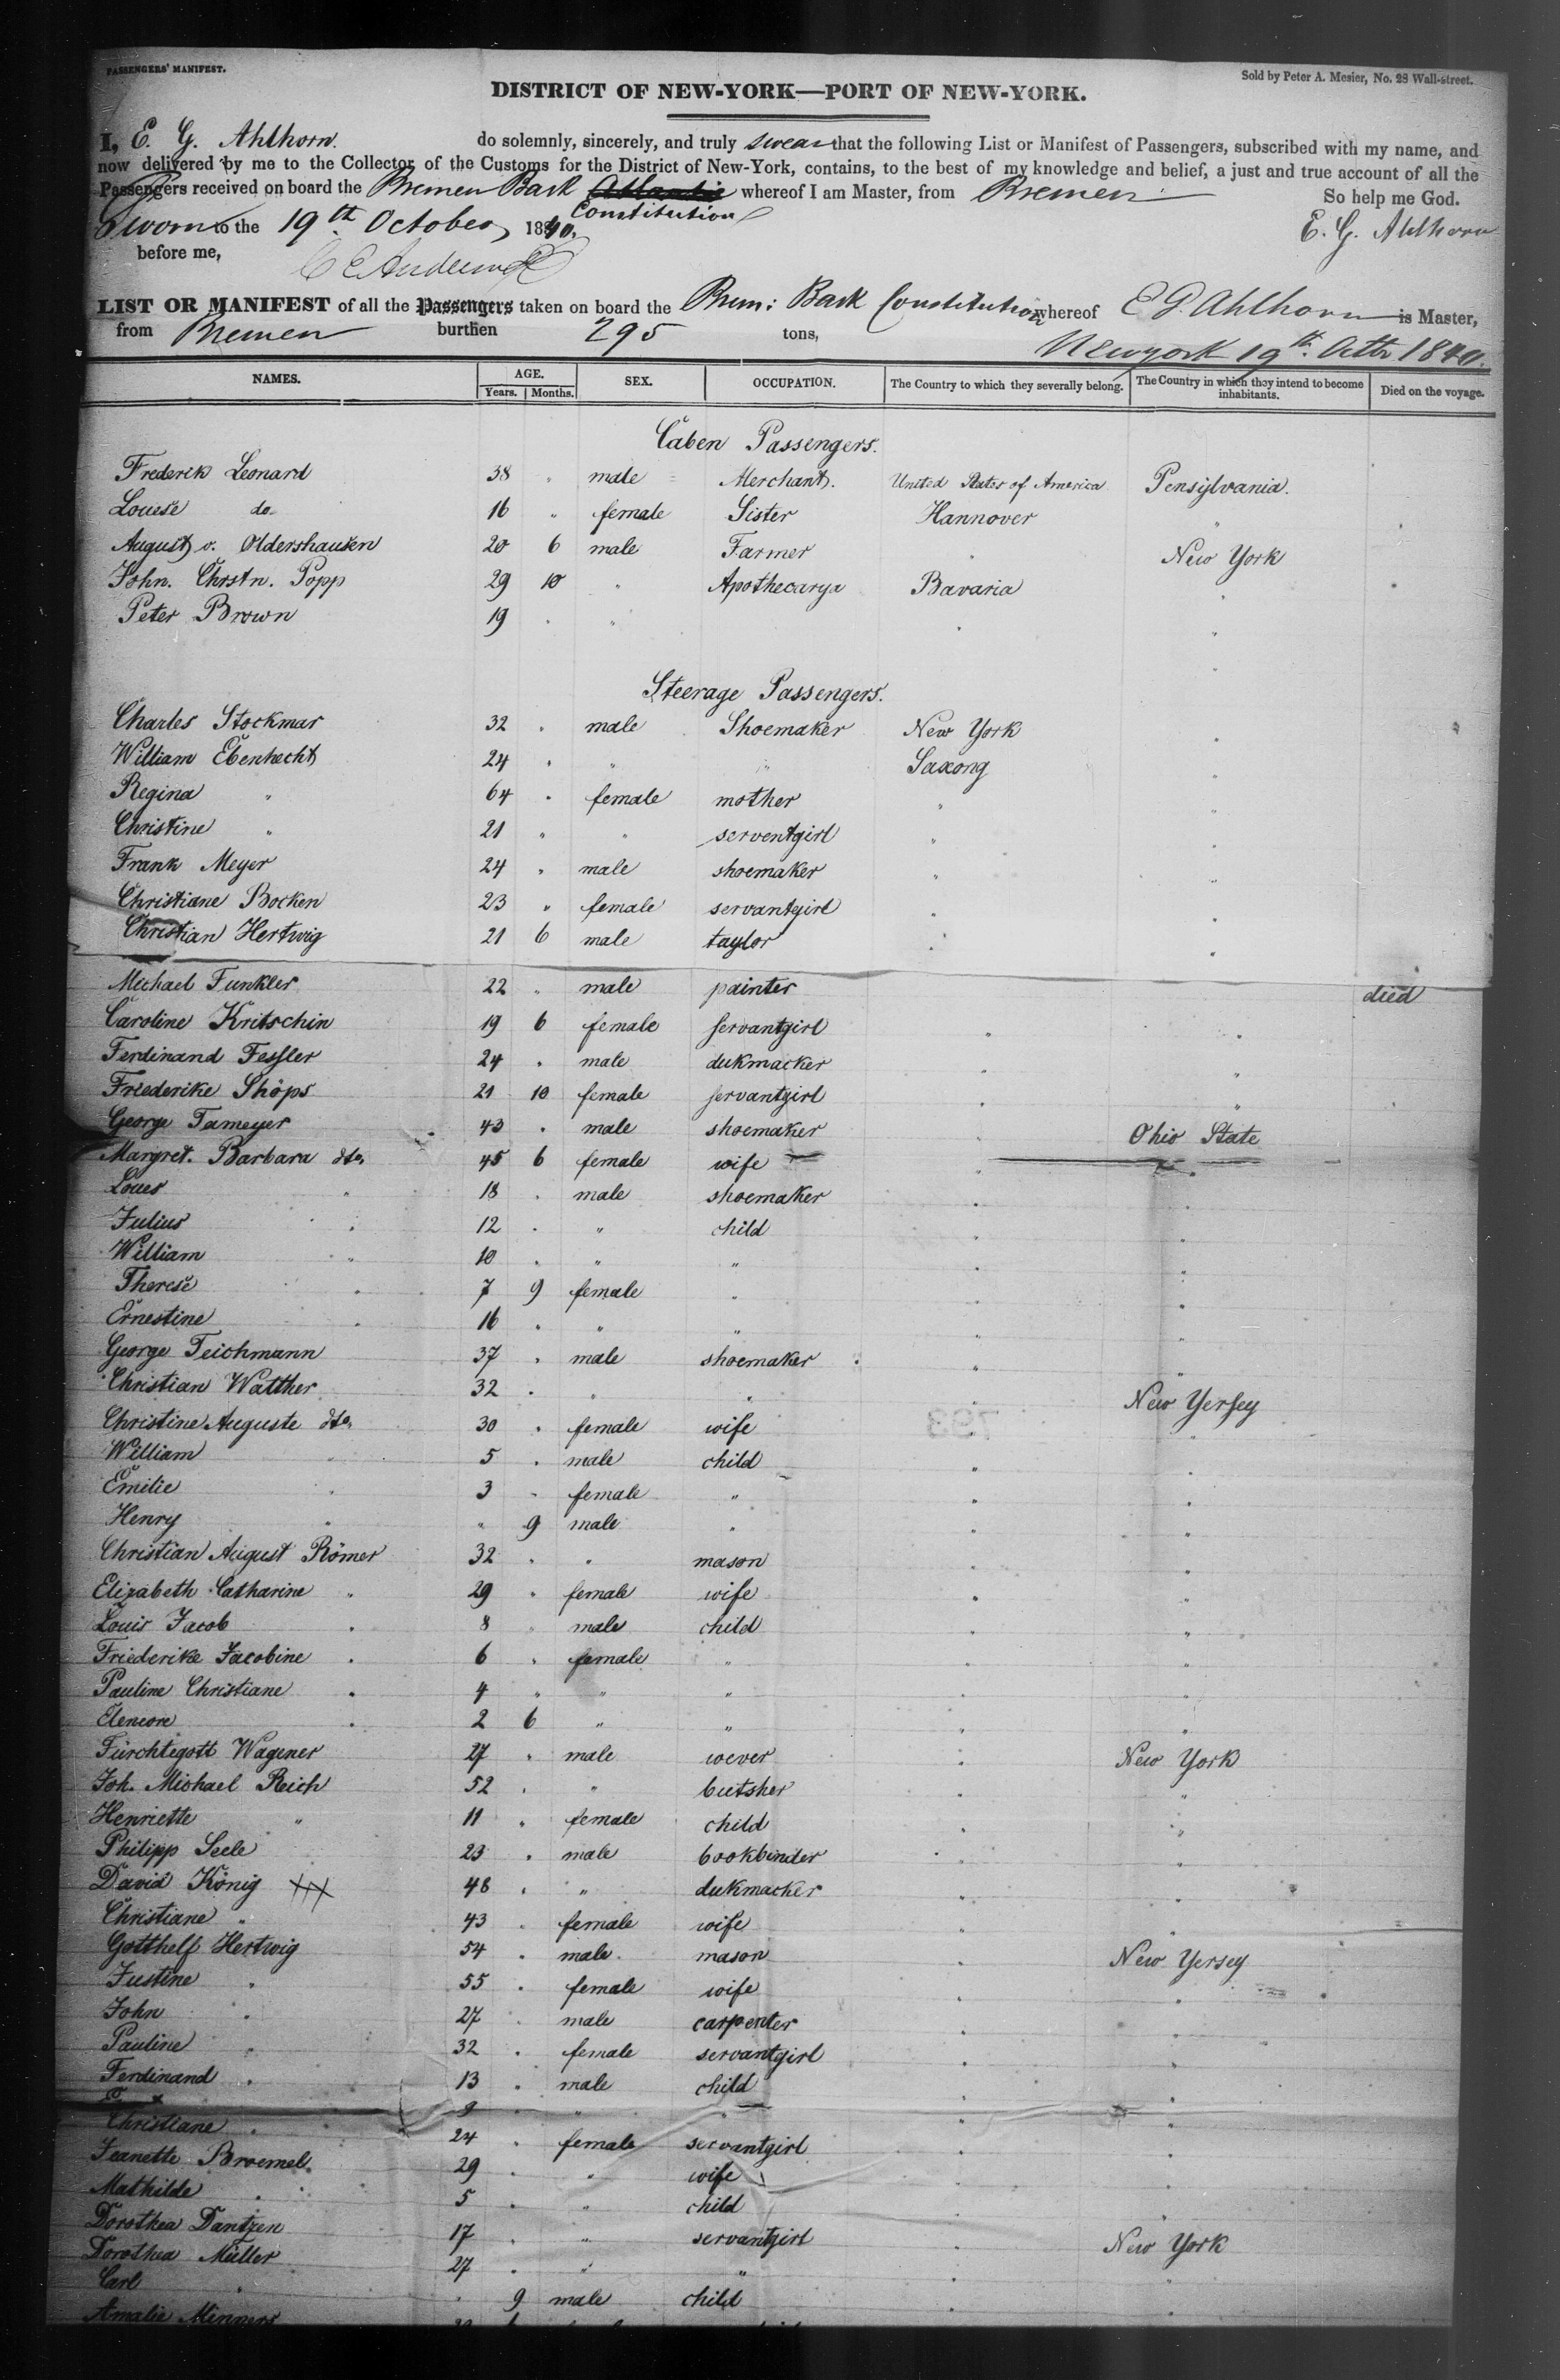 PASSENGERS' MANIFEST.
Sold by Peter A. Mesier, No. 28 Wall-street.
DISTRICT OF NEW-YORK—PORT OF NEW-YORK.
I, E. G. Ahlhorn do solemnly, sincerely, and truly swear that the following List or Manifest of Passengers, subscribed with my name, and
now delivered by me to the Collector of the Customs for the District of New-York, contains, to the best of my knowledge and belief, a just and true account of all the
Passengers received on board the Bremen Bark Atlantic whereof I am Master, from Bremen So help me God.
Constitution
Sworn to the 19th October, 1840. E. G. Ahlhorn
before me,
LIST OR MANIFEST of all the Passengers taken on board the Brem: Bark Constitution whereof E G. Ahlhorn is Master,
from Bremen burthen 295 tons,
Newyork 19th Octbr 1840.
NAMES. AGE. Years. Months. SEX. OCCUPATION. The Country to which they severally belong. The Country in which they intend to become inhabitants. Died on the voyage.
Caben Passengers.
Frederik Leonard 38 " male Merchant. United States of America Pensylvania.
Louise do. 16 " female Sister Hannover "
August v. Oldershausen 20 6 male Farmer " New York
John. Chrstn. Popp 29 10 " Apothecarya Bavaria "
Peter Brown 19 " " " "
Steerage Passengers.
Charles Stockmar 32 " male Shoemaker New York "
William Ebenhecht 24 " " " Saxong "
Regina " 64 " female mother " "
Christine " 21 " " serventgirl " "
Frank Meyer 24 " male shoemaker " "
Christiane Bocken 23 " female servantgirl " "
Christian Hertwig 21 6 male taylor " "
Michael Funkler 22 " male painter died
Caroline Kritschin 19 6 female servantgirl " "
Ferdinand Fessler 24 " male dukmacker " "
Friederike Shöps 21 10 female servantgirl " "
George Tameyer 43 " male shoemaker " Ohio State
Margret. Barbara dto. 45 6 female wife " "
Loues " 18 " male shoemaker " "
Julius " 12 " " child " "
William " 10 " " " " "
Therese " 7 9 female " " "
Ernestine " 16 " " " " "
George Teichmann 37 " male shoemaker " "
Christian Walther 32 " " " " New Yersey
Christine Auguste dto. 30 " female wife " "
William " 5 " male child " "
Emilie " 3 " female " " "
Henry " " 9 male " " "
Christian August Römer 32 " " mason " "
Elizabeth Catharine " 29 " female wife " "
Louis Jacob " 8 " male child " "
Friederike Jacobine " 6 " female " " "
Pauline Christiane " 4 " " " " "
Eleneore " 2 6 " " " "
Fürchtegott Wagener 27 " male wever " New York
Joh. Michael Reich 52 " " butsher " "
Henriette " 11 " female child " "
Philipp Seele 23 " male bookbinder " "
David König 48 " " dukmacker " "
Christiane " 43 " female wife " "
Gotthelf Hertwig 54 " male mason " New Yersey
Justine " 55 " female wife " "
John " 27 " male carpenter " "
Pauline " 32 " female servantgirl " "
Ferdinand " 13 " male child " "
9 " " " " "
Christiane " 24 " female servantgirl " "
Jeanette Broemel 29 " " wife " "
Mathilde " 5 " " child " "
Dorothea Dantzen 17 " " servantgirl " New York
Dorothea Müller 27 " " " " "
Carl " " 9 male child " "
Amalie Minners